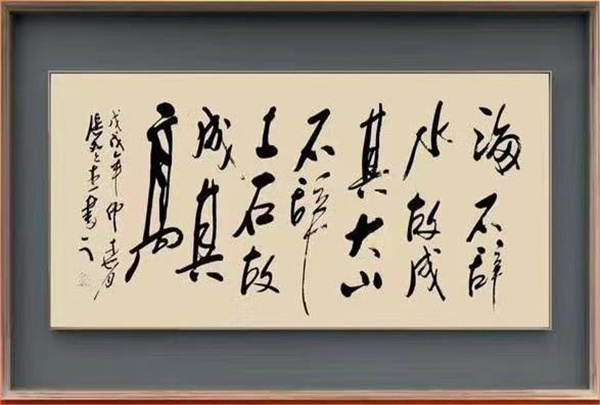 海不辞
水故成
其大山
不辞
土石故
成其
高
戊戌年仲月
书